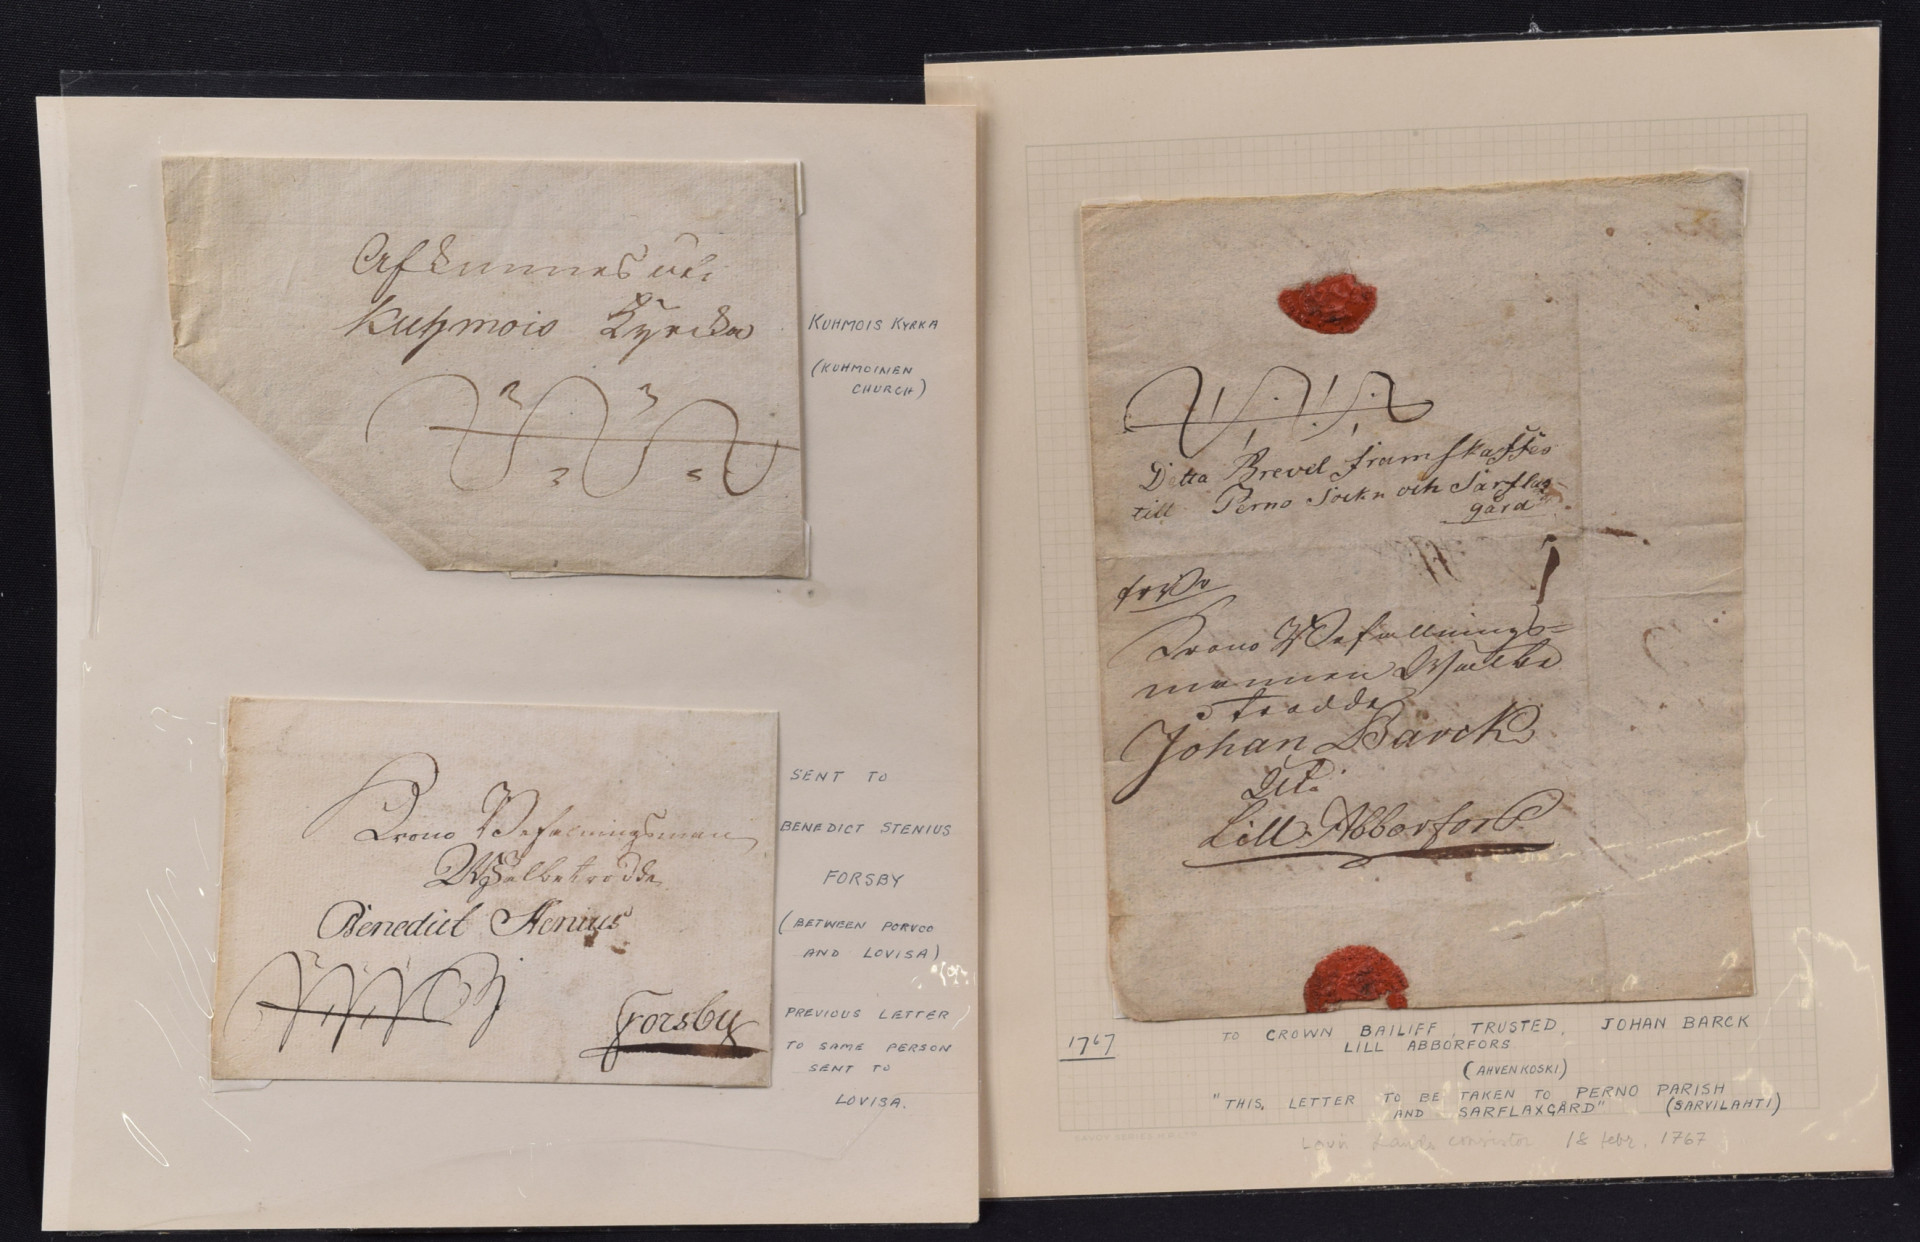 Afkunnes uti
Kuhmois Kyrcka
KUHMOIS KYRKA
(KUHMOINEN
CHURCH)
Krono Befalningsman
Wälbetrodde
Benedict Stenius
Forsby
SENT TO
BENEDICT STENIUS
FORSBY
(BETWEEN PORVOO
AND LOVISA)
PREVIOUS LETTER
TO SAME PERSON
SENT TO
LOVISA.
Detta Brevet framskaffes
till Perno Sockn och Sarflax-
gård
Krono Befallnings=
mannen Wälbe
trodde
Johan Barck
Lill Abborfors
1767
TO CROWN BAILIFF, TRUSTED, JOHAN BARCK
LILL ABBORFORS
(AHVENKOSKI)
"THIS, LETTER TO BE TAKEN TO PERNO PARISH
AND SARFLAXGÅRD" (SARVILAHTI)
18 febr. 1767